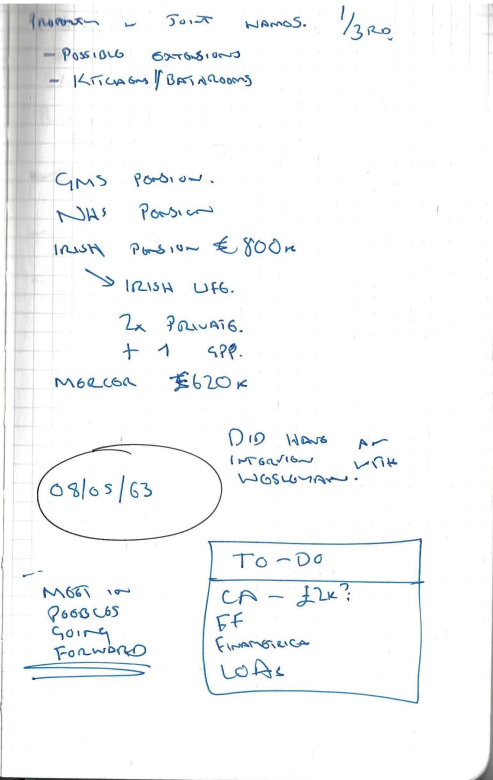 PROPERTY - JOINT NAMES. 1/3RD.
- POSSIBLE EXTENSIONS
- KITCHENS // BATHROOMS
GMS PENSION.
NHS PENSION
IRISH PENSION € 800K
↘ IRISH LIFE.
2x PRIVATE.
+ 1 GPP.
MERCER €620K
DID HAVE AN
INTERVIEW WITH
WESLEYAN.
08/05/63
MEET IN
PEEBLES
GOING
FORWARD
TO-DO
CA - £2K?
FF
FINAMETRICA
LOAs